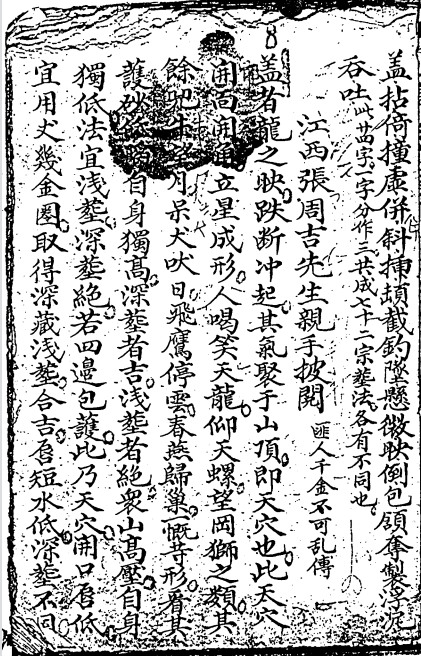 盖拈倚撞虚併斜插頓截釣墜懸微映倒包領奪製浮泥
吞吐此廿四字一字分作三共成七十二宗塟法各有不同也
江西張周吉先生親手披閱 匪人千金不可乱傳
盖者龍之映跌断冲起其氣聚于山頂即天穴也此天穴
開 立星成形人喝笑天龍仰天螺望岡獅之類其
餘 月呆犬吠日飛鷹停雲春燕歸巢一慨等形看其
護砂 自身獨高深塟者吉浅塟者絶衆山高壓自身
獨低法宜浅塟深塟絶若四邊包護此乃天穴開口唇低
宜用丈幾金圏取得深藏浅塟合吉唇短水低深塟不同